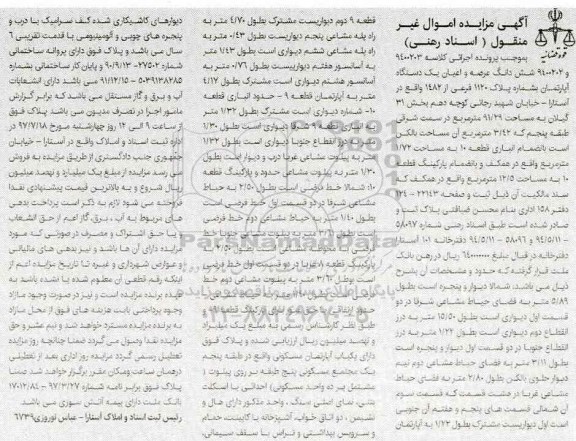 آگهی مزایده اموال غیر
منقول ( اسناد رهنی)
بموجب پرونده اجرائی کلاسه ۹۴۰۰۲۰۳
و ۹۴۰۰۲۰۲ شش دانگ عرصه و اعیان یک دستگاه
آپارتمان بشماره پلاک ۱۱۲۰ فرعی از ۱۴۸۲ واقع در
آستارا – خیابان شهید رجائی کوچه دهم بخش ۳۱
گیلان به مساحت ۹۱/۲۹ مترمربع در سمت شرقی
طبقه پنجم که ۳/۴۲ مترمربع آن مساحت بالکن
است بانضمام انباری قطعه ۱۰ به مساحت ۱/۷۲
مترمربع واقع در همکف و بانضمام پارکینگ قطعه
۱۰ به مساحت ۱۲/۵ مترمربع واقع در همکف که
سند مالکیت آن ذیل ثبت و صفحه ۲۲۱۴۳ – ۱۲۴
دفتر ۱۵۸ اداری بنام محسن ضیافتی پلاک ثبت و
صادر شده است طبق اسناد رهنی شماره ۵۸۰۹۷
– ۹۴/۵/۱۱ و ۵۸۰۹۶ – ۹۴/۵/۱۱ دفترخانه ۱۰۱ آستارا
ریال در رهن بانک
ملت قرار گرفته که حدود و مشخصات آن بشرح
ذیل می باشد، شمالا دیوار و پنجره است بطول
۵/۸۹ متر به فضای حیاط مشاعی شرقا در دو
قسمت اول دیواری است بطول ۱۵/۵۰ متر به درز
انقطاع دوم دیواری است بطول ۱/۲۲ متر به درز
انقطاع جنوبا در دو قسمت اول دیوار و پنجره است
بطول ۳/۱۱ متر به فضای حیاط مشاعی دوم نیم
دیوار جلوی بالکن بطول ۲/۸۰ متر به فضای حیاط
مشاعی غربا در هشت قسمت که قسمت سوم
آن شمالی قسمت های پنجم و هفتم آن جنوبی
است اول دیواریست مشترک بطول ۱/۲۳ به آپارتمان
قطعه ۹ دوم دیواریست مشترک بطول ۴/۷۰ متر به
راه پله مشاعی پنجم دیواریست بطول ۰/۴۳ متر به
راه پله مشاعی ششم دیواری است بطول ۱/۴۳ متر
به آسانسور هفتم دیواریست بطول ۰/۷۶ متر به
آسانسور هشتم دیواری است مشترک بطول ۴/۱۷
متر به آپارتمان قطعه ۹ – حدود انباری قطعه
۱۰- شمالا دیواری است مشترک بطول ۱/۳۲ متر
به انباری قطعه ۹ شرقا دیواری است بطول ۱/۳۰
متر به درز انقطاع جنوبا دیواری است بطول ۱/۳۲
متر به پیلوت مشاعی غربا درب و دیوار است بطول
۱/۳۰ متر به پیلوت مشاعی حدود و پارکینگ قطعه
۱۰: شمالا خط فرضی است بطول ۲/۵۰ به حیاط
مشاعی شرقا در دو قسمت اول خط فرضی است
بطول ۱/۴۰ متر به حیاط مشاعی دوم خط فرضی
طبق نظر کارشناس رسمی به مبلغ یک میلیارد
و نهصد میلیون ریال ارزیابی شده و پلاک فوق
دارای یکباب آپارتمان مسکونی واقع در طبقه پنجم
یک مجتمع مسکونی پنج طبقه بر روی پیلوت (
مشتمل بر ده واحد مسکونی) احداثی با اسکلت
بتنی، نمای اصلی سنگ ، واحد مذکور دارای هال و
نشیمن ، دو اتاق خواب، آشپزخانه با کابینت حمام
و سرویس بهداشتی و تراس با سقف سیمانی،
دیوارهای کاشیکاری شده کف سرامیک با درب و
پنجره های چوبی و آلومینیومی با قدمت تقریبی ۶
سال می باشد و پلاک فوق دارای پروانه ساختمانی
۲۷۵۰۲- ۹۰/۹/۱۳ و پایان کار ساختمانی بشماره
۵۰۳۹۱۳۸۲۸۵ – ۹۱/۱۲/۱۵ می باشد دارای انشعابات
آب و برق و گاز مستقل می باشد که برابر گزارش
مامور اجرا در تصرف مدیون می باشد. پلاک فوق
از ساعت ۹ الی ۱۲ روز چهارشنبه مورخ ۹۷/۷/۱۸ در
اداره ثبت اسناد و املاک واقع در آستارا – خیابان
جمهوری جنب دادگستری از طریق مزایده به فروش
می رسد مزایده از مبلغ یک میلیارد و نهصد میلیون
ریال شروع و به بالاترین قیمت پیشنهادی نقدا
فروخته می شود لازم به ذکر است پرداخت بدهی
های مربوط به آب ، برق، گاز اعم از حق انشعاب
و یا حق اشتراک و مصرف در صورتی که مورد
مزایده دارای آن ها باشد و نیز بدهی های مالیاتی
و عوارض شهرداری و غیره تا تاریخ مزایده اعم از
اینکه رقم قطعی آن معلوم شده یا نشده باشد به
عهده برنده مزایده است و نیز در صورت وجود مازاد
وجوه پرداختی بابت هزینه های فوق از محل مازاد
به برنده مزایده مسترد خواهد شد و نیم عشر و حق
مزایده نقدا وصول می گردد ضمنا چنانچه روز مزایده
تعطیل رسمی گردد مزایده روز اداری بعد از تعطیلی
درهمان ساعت ومکان مقرر برگزار خواهد شد ضمنا
پلاک فوق برابر نامه شماره ۹۷/۳/۲۷ – ۱۷۰۱۲/۸۴
بانک ملت دارای بیمه آتش سوزی می باشد
رئیس ثبت اسناد و املاک آستارا – عباس نوروزی ۶۷۳۹
ParsNamadData
پایگاه اطلاع رسانی